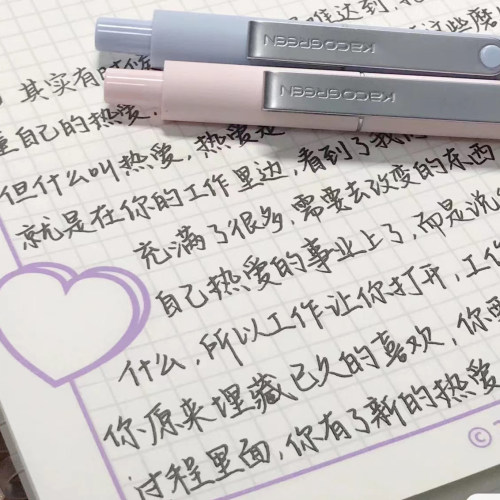 难达到,
其实有时候
这些磨
KACOGREEN
KACOGREEN
重自己的热爱,
但什么叫热爱,热爱是
就是在你的工作里边,看到了我
充满了很多,需要去改变的东西
自己热爱的事业上了,而是说
什么,所以工作让你打开,工作
你原来埋藏已久的喜欢,你要
过程里面,你有了新的热爱
©